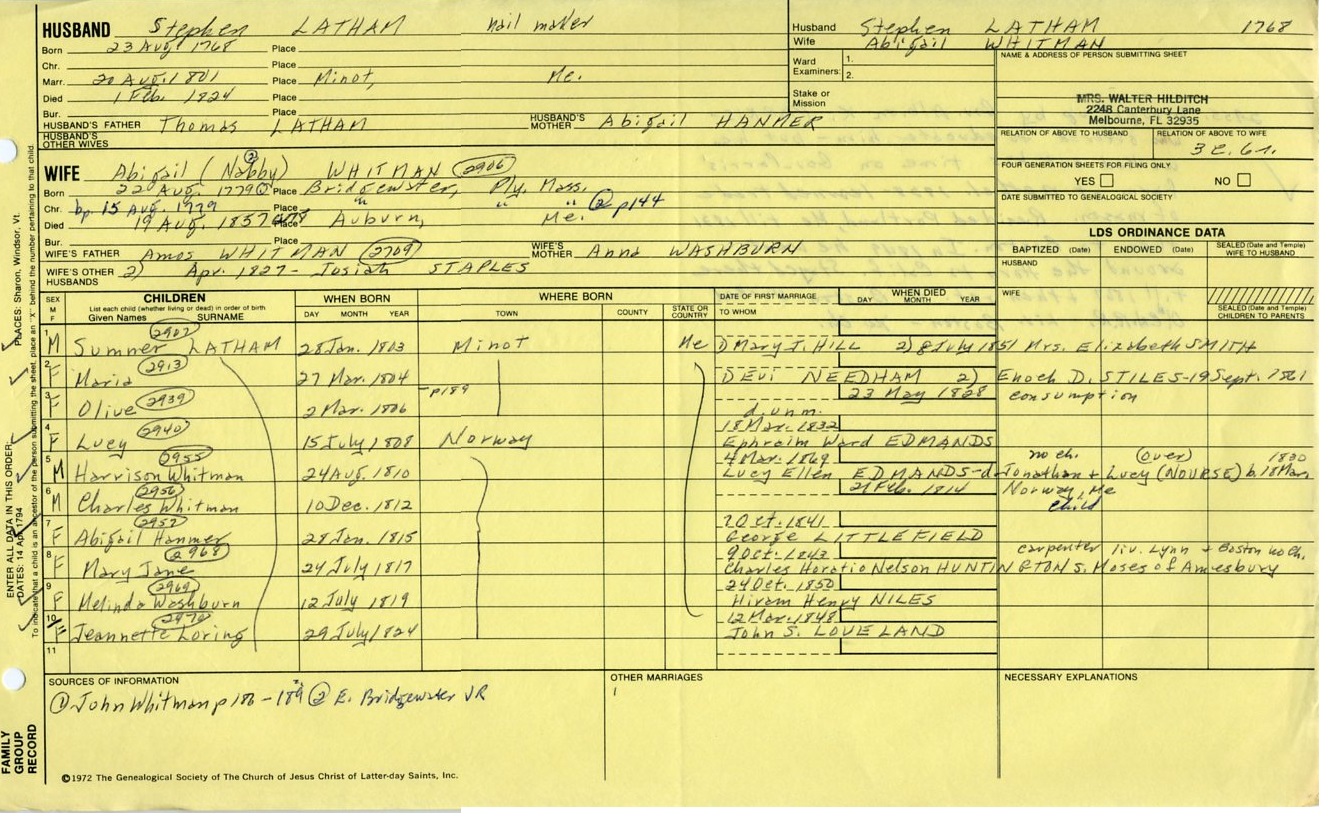 HUSBAND Stephen LATHAM nail maker
Born 23 Aug. 1768 Place
Chr. Place
Marr. 20 Aug. 1801 Place Minot, Me.
Died 1 Feb. 1824 Place
Bur. Place
HUSBAND'S FATHER Thomas LATHAM HUSBAND'S MOTHER Abigail HANMER
HUSBAND'S OTHER WIVES
Husband Stephen LATHAM 1768
Wife Abigail WHITMAN
Ward Examiners: 1.
2.
Stake or Mission
NAME & ADDRESS OF PERSON SUBMITTING SHEET
MRS. WALTER HILDITCH
2248 Canterbury Lane
Melbourne, FL 32935
RELATION OF ABOVE TO HUSBAND RELATION OF ABOVE TO WIFE
3C.6r.
FOUR GENERATION SHEETS FOR FILING ONLY
YES NO
DATE SUBMITTED TO GENEALOGICAL SOCIETY
LDS ORDINANCE DATA
BAPTIZED (Date) ENDOWED (Date) SEALED (Date and Temple) WIFE TO HUSBAND
HUSBAND
WIFE
SEALED (Date and Temple) CHILDREN TO PARENTS
WIFE Abigail (Nabby) ② WHITMAN 2906
Born 22 Aug. 1779 ① Place Bridgewater, Ply. Mass.
Chr. bp. 15 Aug. 1779 " " ② p144
Died 19 Aug. 1857 Auburn, Me.
Bur. Place
WIFE'S FATHER Amos WHITMAN 2709 WIFE'S MOTHER Anna WASHBURN
WIFE'S OTHER HUSBANDS 2) Apr. 1827 - Josiah STAPLES
SEX M F CHILDREN WHEN BORN WHERE BORN DATE OF FIRST MARRIAGE WHEN DIED
List each child (whether living or dead) in order of birth
Given Names SURNAME DAY MONTH YEAR TOWN COUNTY STATE OR COUNTRY TO WHOM DAY MONTH YEAR
1 M Sumner LATHAM 2907 28 Jan. 1803 Minot Me 1) Mary J. HILL 2) 8 July 1851 Mrs. Elizabeth SMITH
2 F Maria 2913 27 Mar. 1804 1) Evi NEEDHAM 2) Enoch D. STILES - 19 Sept. 1861
3 F Olive 2939 2 Mar. 1806 p189 d. unm. 23 May 1828 consumption
4 F Lucy 2940 15 July 1808 Norway 18 Mar. 1832 Ephraim Ward EDMANDS
5 M Harrison Whitman 2955 24 Aug. 1810 4 Mar. 1869 no ch. (over) 1830
Lucy Ellen EDMANDS - d. Jonathan + Lucy (NOURSE) b. 18 Mar.
6 M Charles Whitman 2956 10 Dec. 1812 21 Feb. 1814 Norway, Me child
7 F Abigail Hanmer 2957 28 Jan. 1815 7 Oct. 1841 George LITTLEFIELD
8 F Mary Jane 2968 24 July 1817 9 Oct. 1843 carpenter liv. Lynn + Boston no ch.
Charles Horatio Nelson HUNTINGTON S. Moses of Amesbury
9 F Melinda Washburn 2969 12 July 1819 24 Oct. 1850 Hiram Henry NILES
10 F Jeannette Loring 2970 29 July 1824 12 Mar. 1848 John S. LOVELAND
11
SOURCES OF INFORMATION
① John Whitman p 186 - 189 ② E. Bridgewater VR
OTHER MARRIAGES
1
NECESSARY EXPLANATIONS
©1972 The Genealogical Society of The Church of Jesus Christ of Latter-day Saints, Inc.
FAMILY GROUP RECORD
ENTER ALL DATA IN THIS ORDER:
DATES: 14 Apr 1794
PLACES: Sharon, Windsor, Vt.
To indicate that a child is an ancestor of the person submitting the sheet, place an "X" behind the number pertaining to that child.